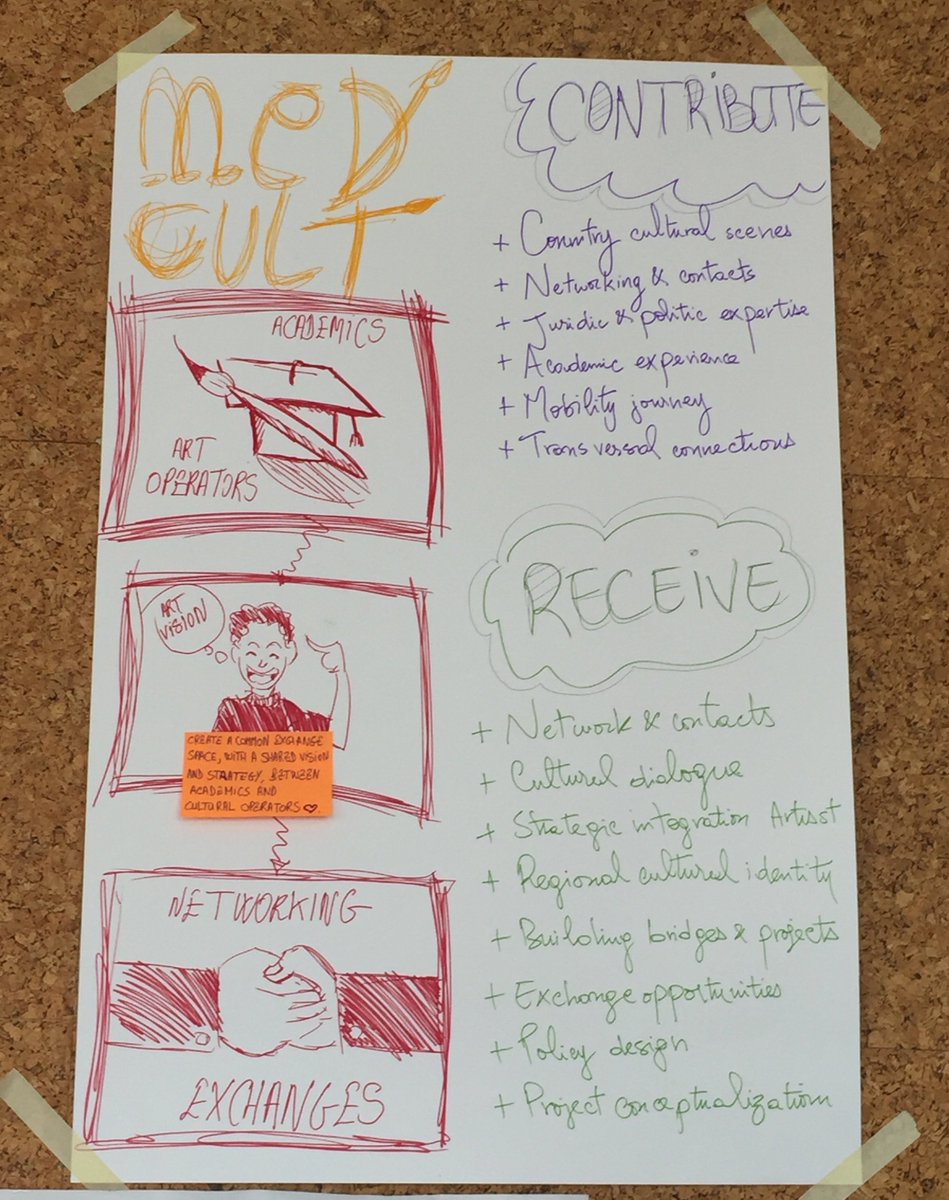 MED
CULT
ACADEMICS
ART
OPERATORS
ART
VISION
CREATE A COMMON EXCHANGE
SPACE, WITH A SHARED VISION
AND STRATEGY, BETWEEN
ACADEMICS AND
CULTURAL OPERATORS
NETWORKING
EXCHANGES
CONTRIBUTE
+ Country cultural scenes
+ Networking & contacts
+ Juridic & politic expertise
+ Academic experience
+ Mobility journey
+ Transversal connections
RECEIVE
+ Network & contacts
+ Cultural dialogue
+ Strategic integration Artist
+ Regional cultural identity
+ Building bridges & projects
+ Exchange opportunities
+ Policy design
+ Project conceptualization